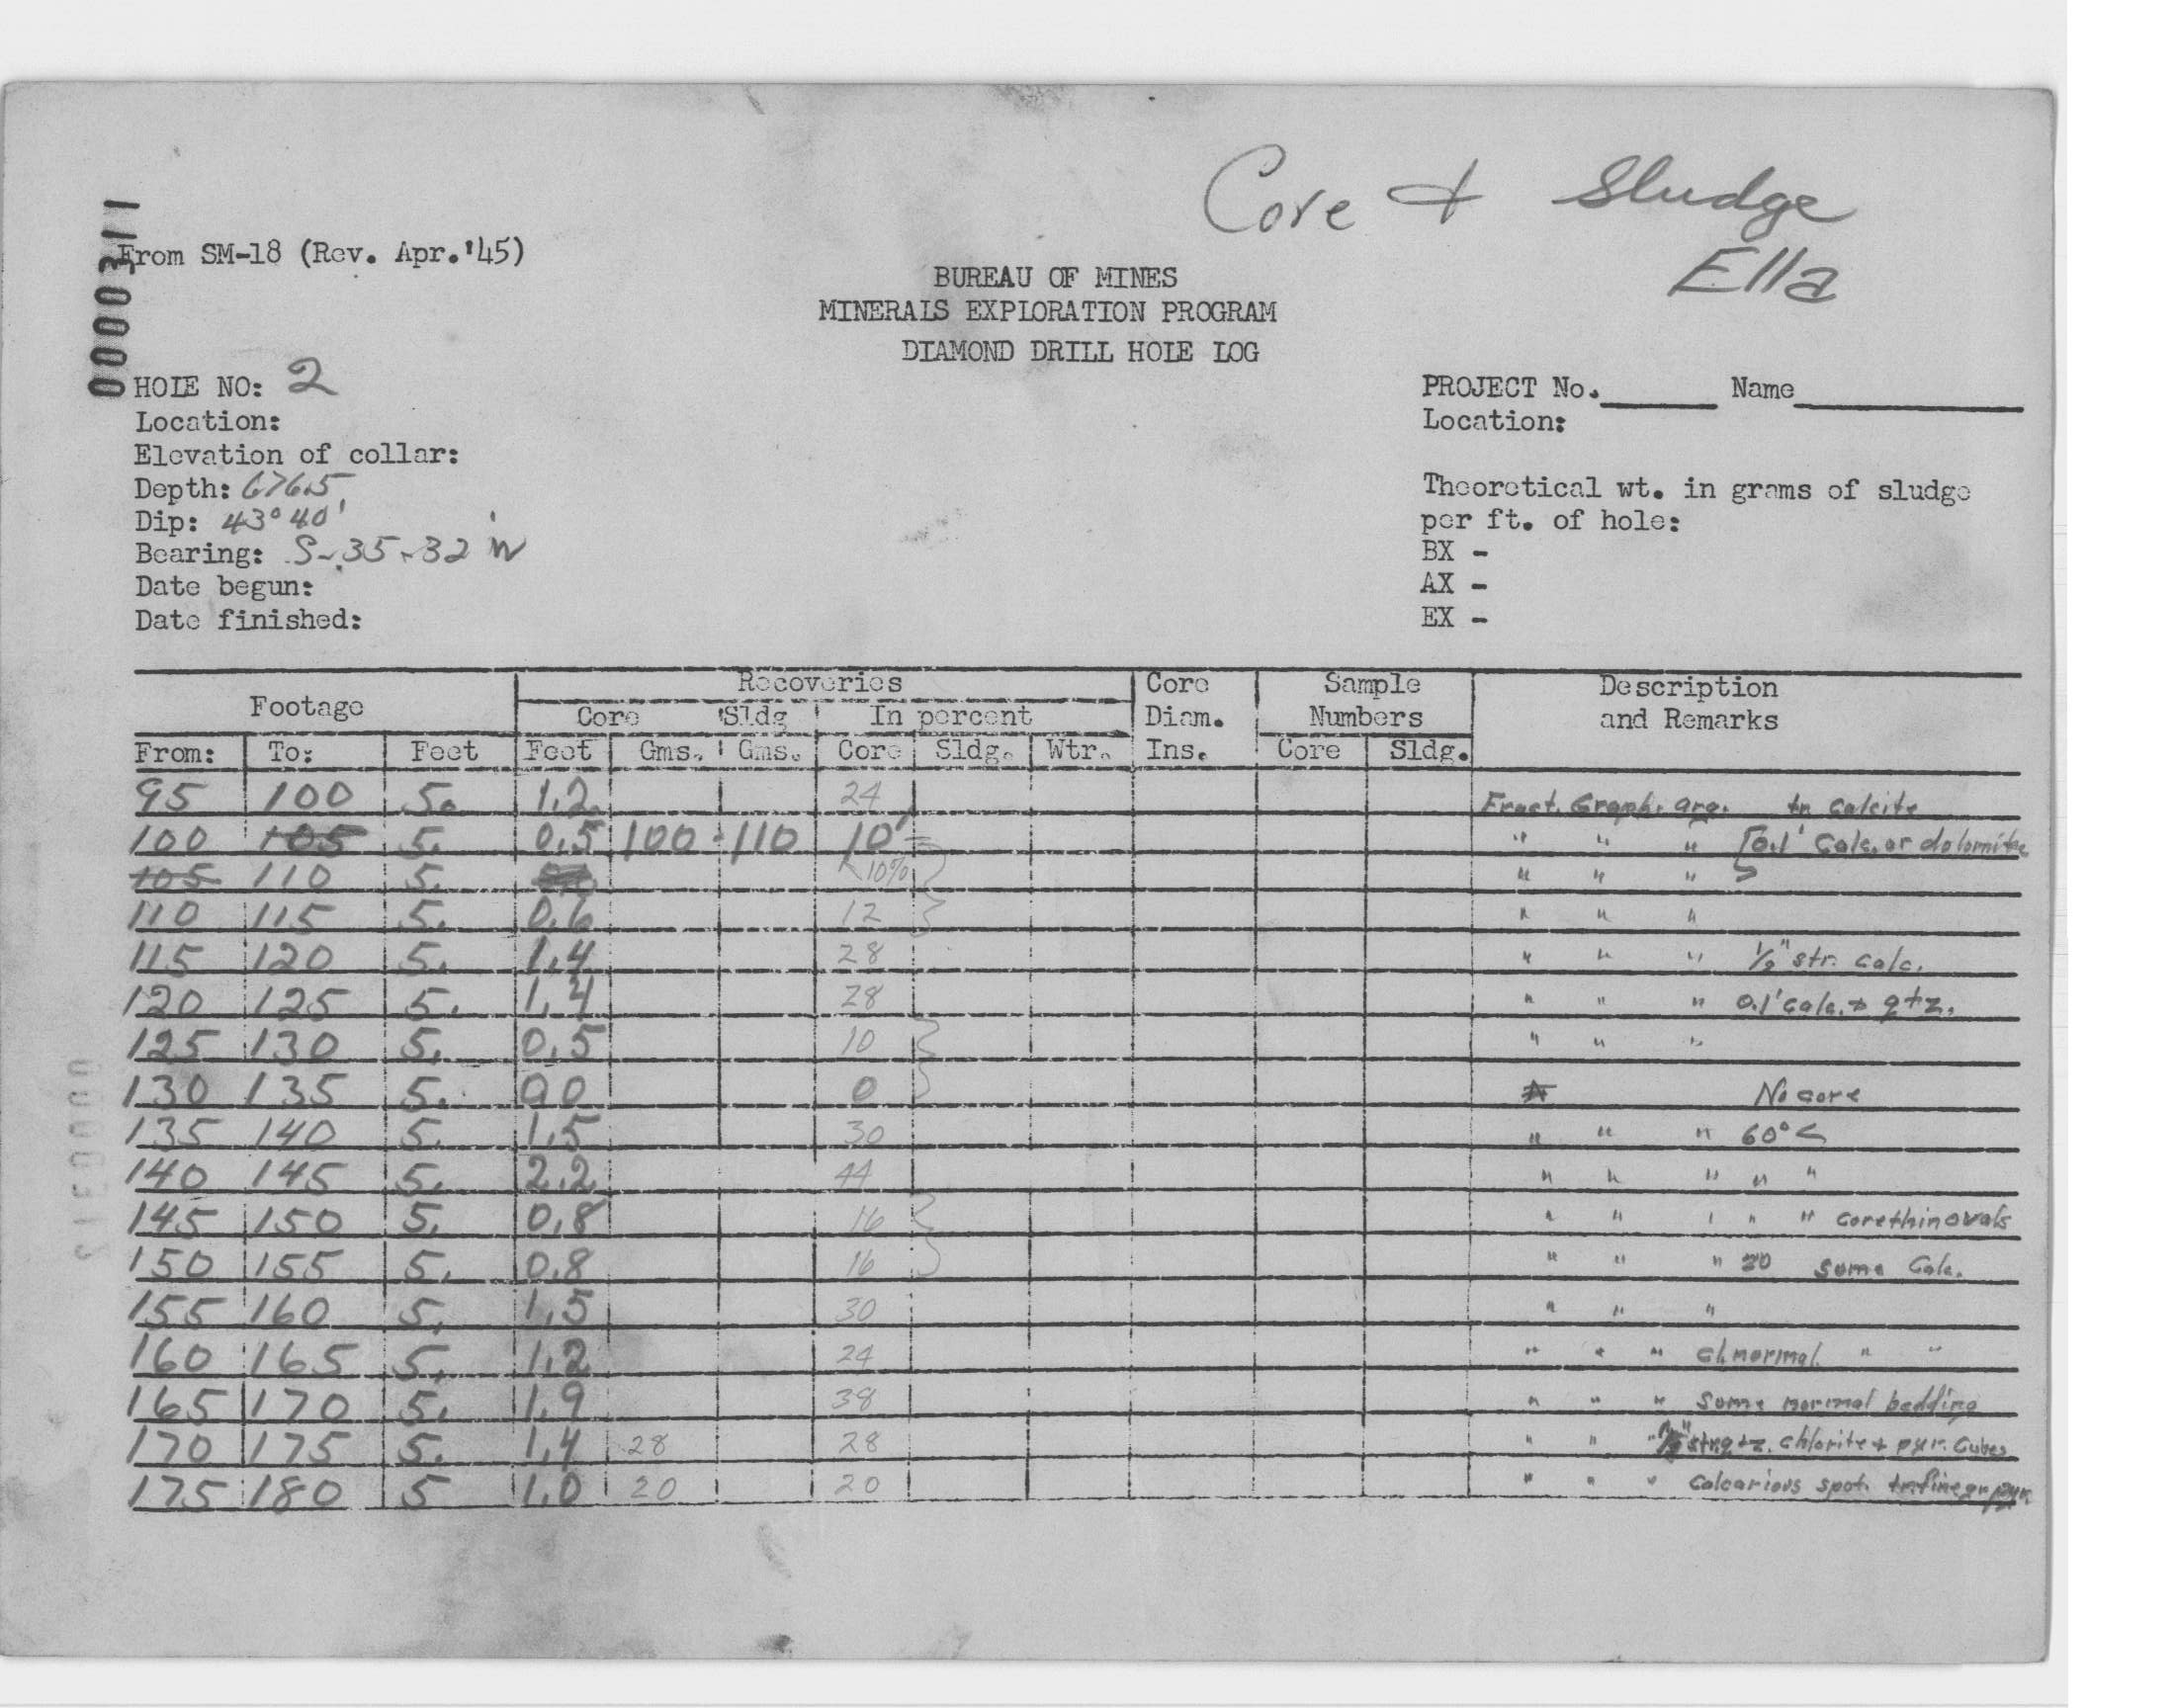 Core & Sludge
Ella
000031
From SM-18 (Rev. Apr.'45)
BUREAU OF MINES
MINERALS EXPLORATION PROGRAM
DIAMOND DRILL HOLE LOG
HOLE NO: 2
Location:
Elevation of collar:
Depth: 676.5
Dip: 43° 40'
Bearing: S-35-32' W
Date begun:
Date finished:
PROJECT No. Name
Location:
Theoretical wt. in grams of sludge
per ft. of hole:
BX -
AX -
EX -
Footage Recoveries Core Sample Description
Core Sldg In percent Diam. Numbers and Remarks
From: To: Feet Feet Gms. Gms. Core Sldg. Wtr. Ins. Core Sldg.
95 100 5. 1.2 24 Fract. Graph. arg. tr calcite
100 105 5. 0.5 100-110 10' = " " " [0.1' Calc. or dolomite
105 110 5. <10% " " "
110 115 5. 0.6 12 " " "
115 120 5. 1.4 28 " " " 1/2" str. calc.
120 125 5. 1.4 28 " " " 0.1' calc. + qtz.
125 130 5. 0.5 10 " " "
130 135 5. 0.0 0 No core
135 140 5. 1.5 30 " " " 60° <
140 145 5. 2.2 44 " " " " "
145 150 5. 0.8 16 " " " " " core thin ovals
150 155 5. 0.8 16 " " " 30 some Calc.
155 160 5. 1.5 30 " " "
160 165 5. 1.2 24 " " " cl. normal. " "
165 170 5. 1.9 38 " " " Some normal bedding
170 175 5. 1.4 28 28 " " " str. qtz. chlorite + pyr. Cubes
175 180 5 1.0 20 20 " " " Calcarious spot. tr fine gr pyr